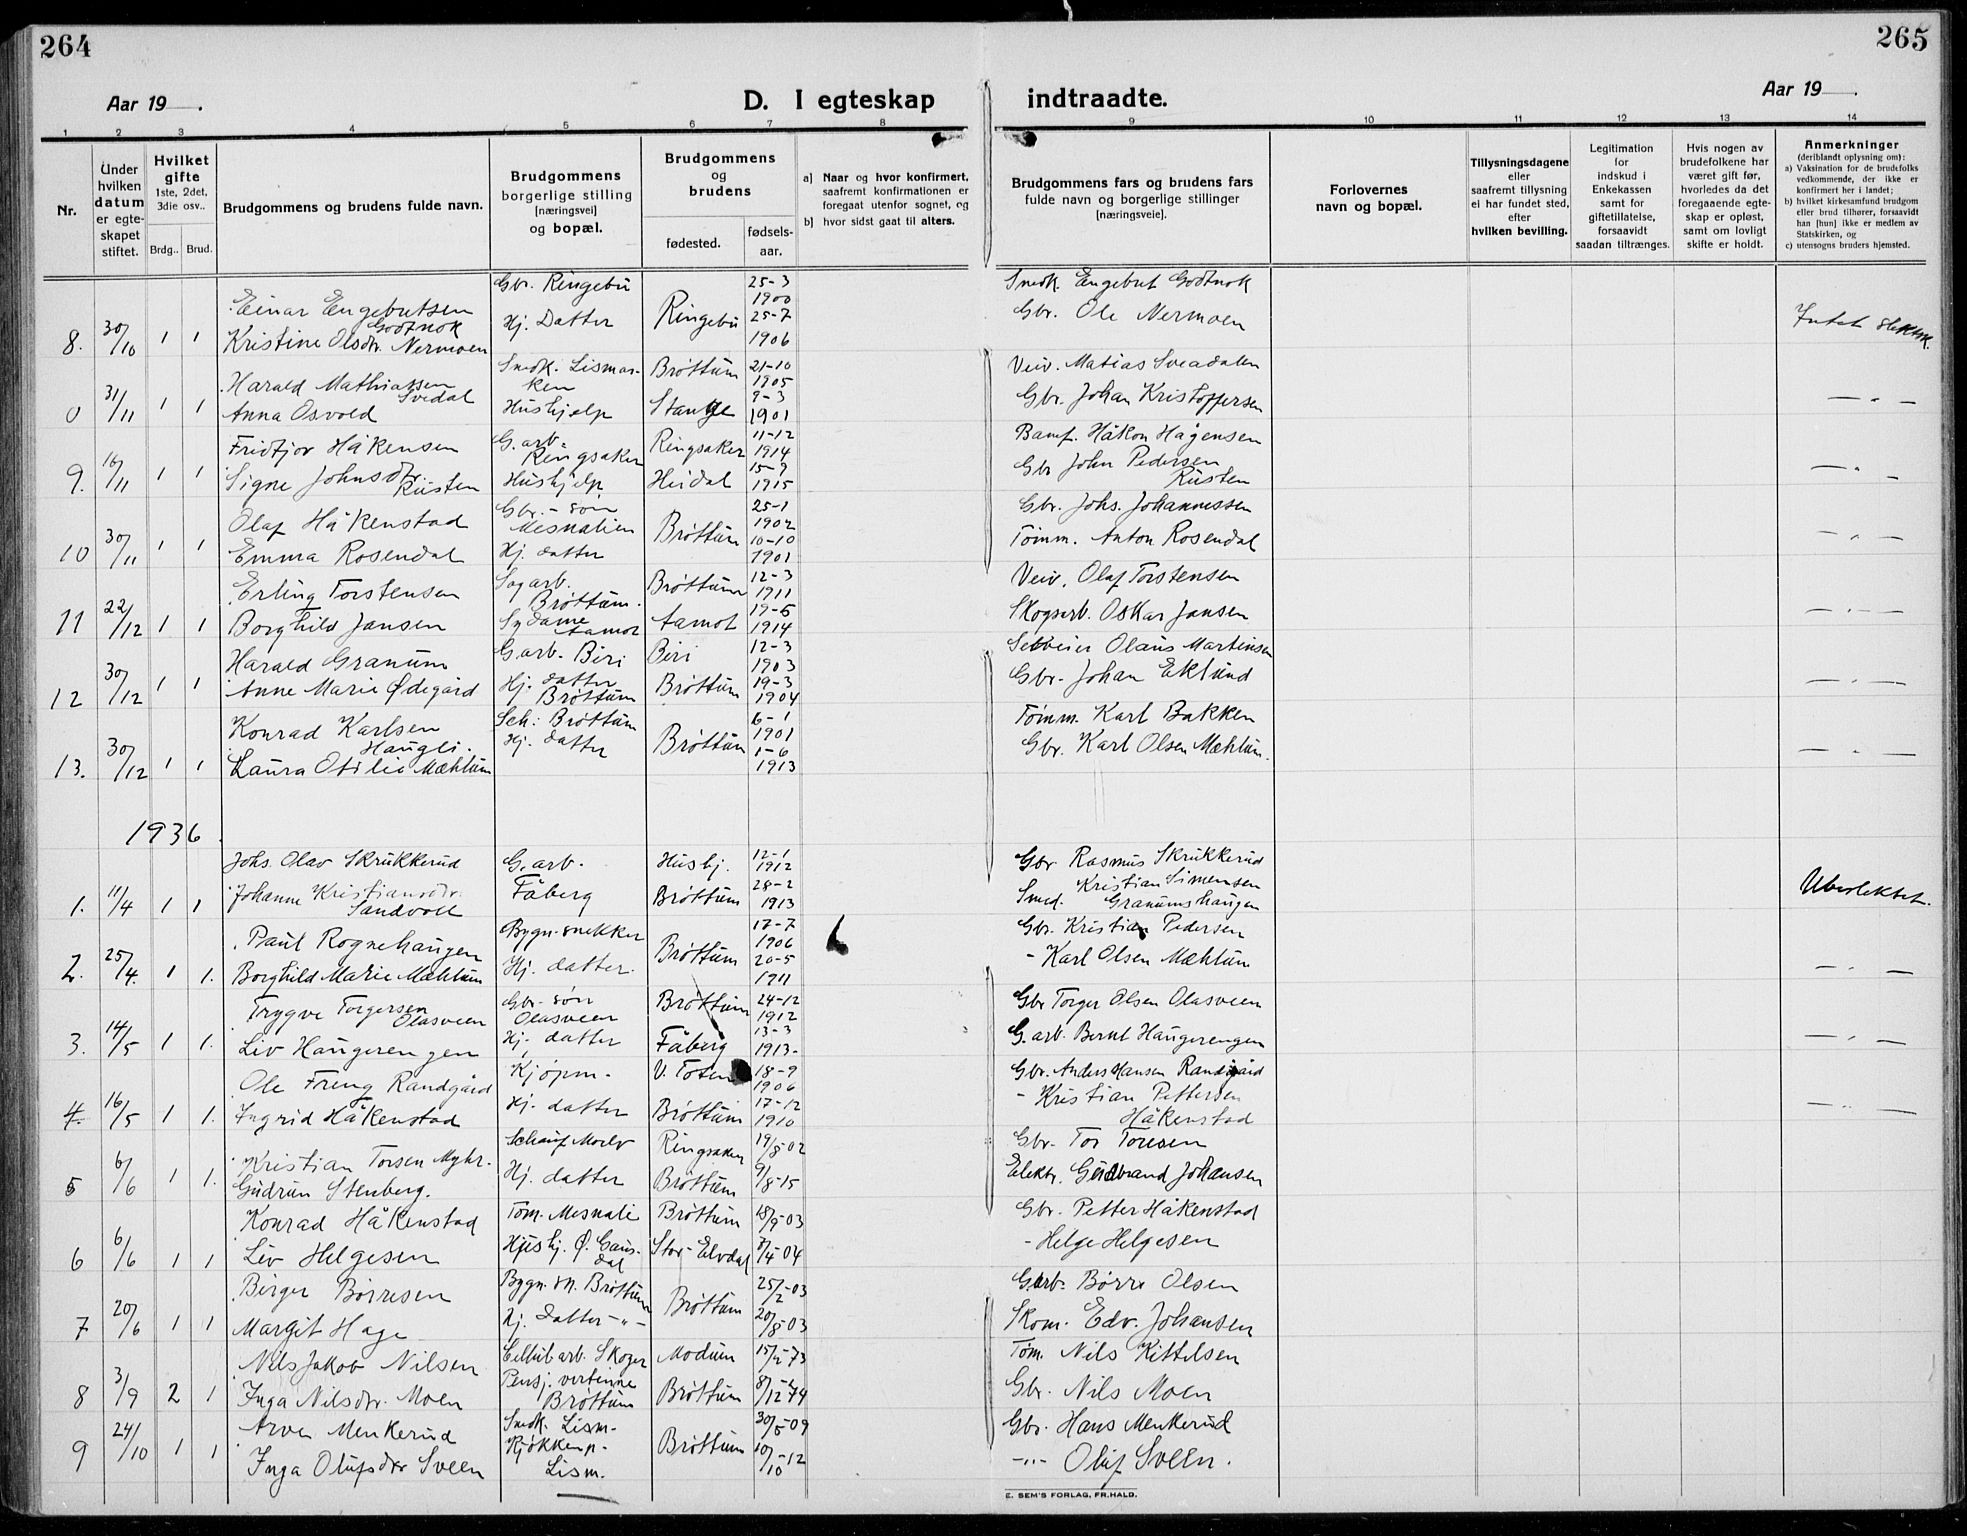 264
265
Aar 19 .
D. I egteskap
indtraadte.
Aar 19 .
1 2 3 4 5 6 7 8 9 10 11 12 13 14
Nr.
Under hvilken datum er egte-skapet stiftet.
Hvilket gifte 1ste, 2det, 3die osv..
Brdg.. Brud.
Brudgommens og brudens fulde navn.
Brudgommens borgerlige stilling [næringsvei] og bopæl.
Brudgommens og brudens
fødested. fødsels-aar.
a) Naar og hvor konfirmert, saafremt konfirmationen er foregaat utenfor sognet, og
b) hvor sidst gaat til alters.
Brudgommens fars og brudens fars fulde navn og borgerlige stillinger [næringsveie].
Forlovernes navn og bopæl.
Tillysningsdagene eller saafremt tillysning ei har fundet sted, efter hvilken bevilling.
Legitimation for indskud i Enkekassen samt for giftetillatelse, forsaavidt saadan tiltrænges.
Hvis nogen av brudefolkene har været gift før, hvorledes da det foregaaende egte-skap er opløst, samt om lovligt skifte er holdt.
Anmerkninger (deriblandt oplysning om):
a) Vaksination for de brudefolks vedkommende, der ikke er konfirmert her i landet;
b) hvilket kirkesamfund brudgom eller brud tilhører, forsaavidt han [hun] ikke er medlem av Statskirken, og
c) utensogns bruders hjemsted.
Einar Engebretsen Godtnok Gbr. Ringebu Ringebu 25-3 1900 Smedk. Engebret Godtnok
8. 30/10 1 1 Kristine Olsdr. Nermoen Hj. Datter 25-7 1906 Gbr. Ole Nermoen
Harald Mathiassen Svedal Smedk. Lismar-ken Brøttum 21-10 1905 Veiv. Matias Sveadalen
0 31/11 1 1 Anna Osvold Hushjelp Stange 9-3 1901 Gbr. Johan Kristoffersen — " —
Fridtjov Håkensen G. arb. Ringsaker Ringsaker 11-12 1914 Håkon Hågensen
9. 16/11 1 1 Signe Johnsdtr. Rusten Hushjelp Heidal 15-9 1915 Gbr John Pedersen Rusten — " —
Olaf Håkenstad Gbr.-søn Mesnalien Brøttum 25-1 1902 Gbr. Johs. Johannessen
10 30/11 1 1 Emma Rosendal Hj. datter 10-10 1901 Tømm. Anton Rosendal — " —
Erling Torstensen Sagarb. Brøttum. Brøttum 12-3 1911 Veiv. Olaf Torstensen
11 22/12 1 1 Borghild Jansen Sydame Aamot Aamot 19-5 1914 Skogsarb. Oskar Jansen — " —
Harald Granum G.arb. Biri Biri 12-3 1903 Olaus Martinsen
12 30/12 1 1 Anne Marie Ødegård Hj. datter Brøttum Brøttum 19-3 1904 Gbr. Johan Eklund — " —
Konrad Karlsen Haugli. Sch: Brøttum Brøttum 6-1 1901 Tømm. Karl Bakken
13. 30/12 1 1 Laura Otilie Mæhlum Hj. datter 1-6 1913 Gbr. Karl Olsen Mæhlum. — " —
1936.
Johs. Olav Skrukkerud G. arb. Hushj. 12-1 1912 Gbr Rasmus Skrukkerud
1. 11/4 1 1 Johanne Kristiansdr. Sandvoll Fåberg Brøttum 28-2 1913 Smed. Kristian Simensen Granumshaugen Ubeslektet.
Paul Rognehaugen Bygn.snekker Brøttum 17-7 1906 Gbr. Kristian Pedersen
2. 25/4. 1 1. Borghild Marie Mæhlum Hj. datter. 20-5 1911 - Karl Olsen Mæhlum — " —
Trygve Torgersen Olasveen Gbr-søn Olasveen Brøttum 24-12 1912 Gbr Torger Olsen Olasveen
3. 14/5 1 1. Liv Haugerengen Hj. datter Fåberg 13-3 1913- G. arb. Bernt Haugerengen — " —
Ole Freng Randgård Kjøpm. V. Toten 18-9 1906 Gbr. Anders Hansen Randgård
4. 16/5 1 1. Ingrid Håkenstad Hj. datter Brøttum 17-12 1910 - Kristian Pettersen Håkenstad — " —
Kristian Torsen Myhr. Moelv Ringsaker 19/8-02 Gbr. Tor Toresen
5 6/6 1 1. Gudrun Stenberg. Hj. datter Brøttum 9/8-15 Elektr. Gudbrand Johansen
Konrad Håkenstad Tøm. Mesnali Brøttum 18/9-03 Gbr. Petter Håkenstad
6 6/6 1 1 Liv Helgesen Hushj. Ø. Gaus-dal Stor-Elvdal 7/4-04 - Helge Helgesen
Birger Børresen Bygn. sn. Brøttum Brøttum 25/2-03 G.arb. Børre Olsen
7 20/6 1 1 Margit Hage Hj. datter - " - 20/8-03 Skom. Edv. Johansen
Nils Jakob Nilsen Cellul.arb. Skoger Modum 15/2-73 Tøm. Nils Kittelsen
8 3/9 2 1 Inga Nilsdr. Moen Pensj. vertinne Brøttum Brøttum 8/12-74 Gbr. Nils Moen
Arve Menkerud Smedk. Lism. Brøttum 30/5-09 Gbr. Hans Menkerud
9 24/10 1 1 Inga Olufsdtr Sveen Kjøkkenp. Lism. 10/10-12 - " - Oluf Sveen.
E. SEM'S FORLAG, FR.HALD.